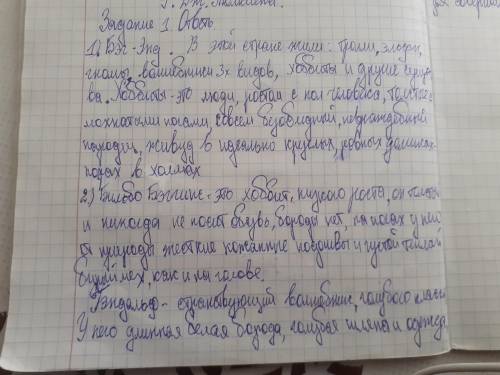 Дж. Толкиены.
Задание 1. Ответь
1) Бэг-Энд. В этой стране жили: троли, эльфы,
гномы, волшебники 3х видов, хоббиты и другие
ва. Хоббиты - это люди, ростом с пол человека, толстые с
лохматыми ногами, совсем безобидный, невраждебный
народец, живут в идеально круглых, ровных
норах в холмах
2) Бильбо Бэггинс - это хоббит, низкого роста, он толстый
и никогда не носит обувь, бороды нет, на ногах у него
от природы жесткие кожаные подошвы и густой теплый
бурый мех, как и на голове.
Гэндальф - странствующий волшебник, голубого класса
У него длинная белая борода, голубая шляпа и одежда